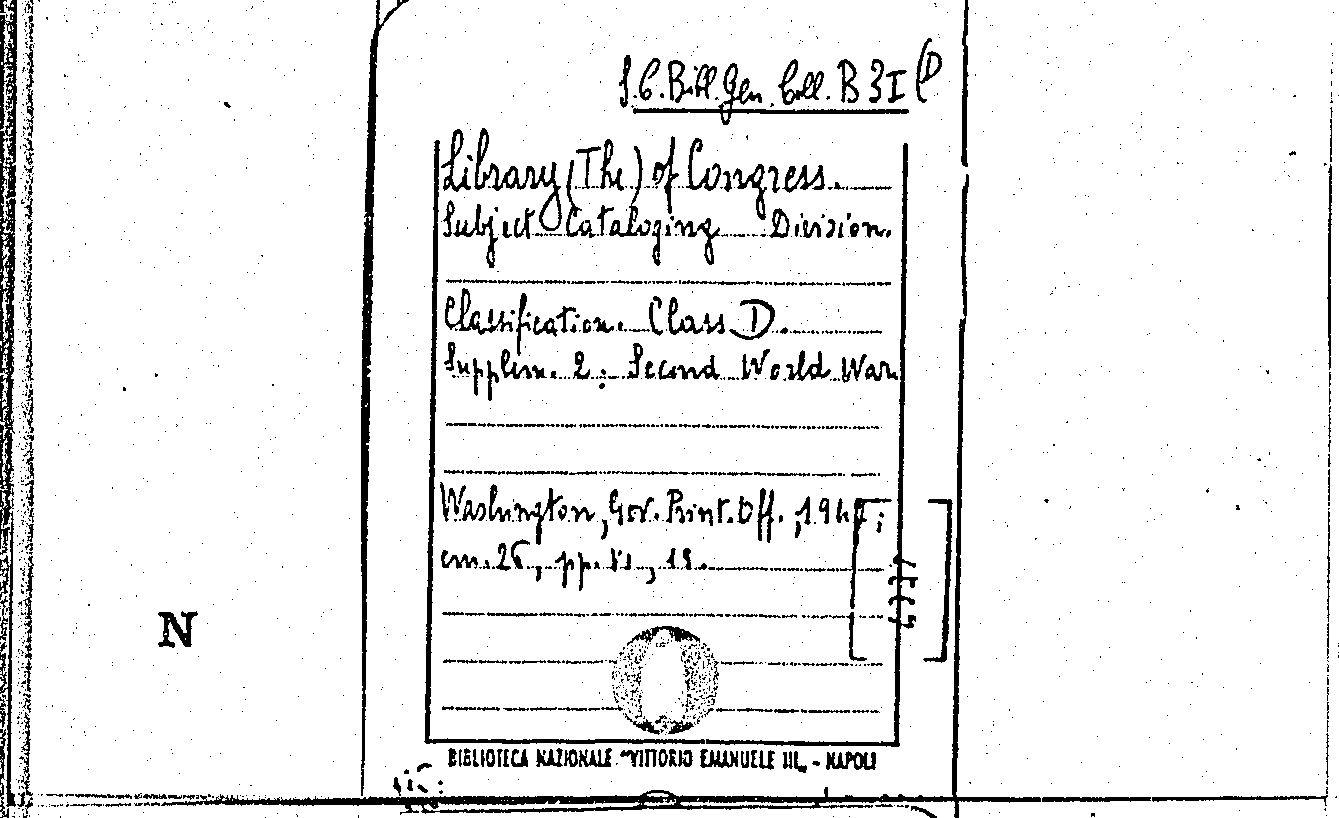 S.C. Bibl. Gen. Coll. B 3I (D
Library (The) of Congress.
Subject Cataloging Division.
Classification. Class D.
Supplem. 2: Second World War.
Washington, Gov. Print. Off., 1947;
cm. 26, pp. VI, 18.
N
BIBLIOTECA NAZIONALE "VITTORIO EMANUELE III„ - NAPOLI